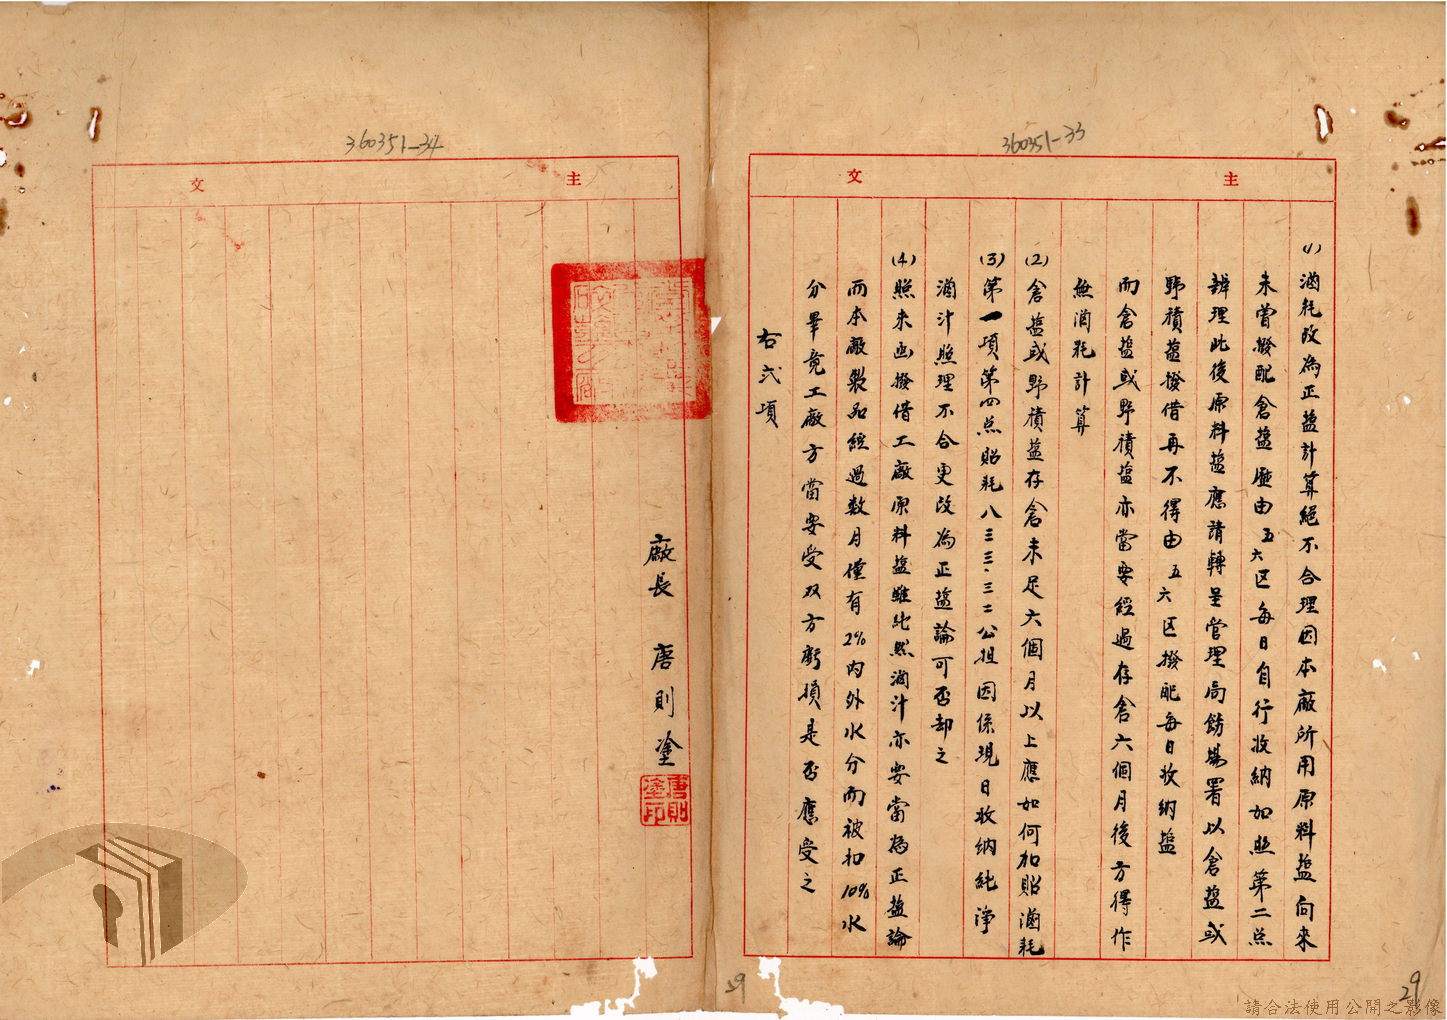 360351-33
主文
(1)滷耗改為正盐計算絕不合理因本廠所用原料盐向來
未曾撥配倉盐歷由五六区每日自行收納如照第二点
辦理此後原料盐應請轉呈管理局飭場署以倉盐或
野積盐撥借再不得由五六区撥配每日收納盐
而倉盐或野積盐亦當要經過存倉六個月後方得作
無滷耗計算
(2)倉盐或野積盐存倉未足六個月以上應如何加貼滷耗
(3)第一項第四点貼耗八三三.三二公担因係現日收納純淨
滷汁照理不合更改為正盐論可否却之
(4)照來函撥借工廠原料盐雖純然滷汁亦要當為正盐論
而本廠製品經過数月僅有2%内外水分而被扣10%水
分畢竟工廠方當要受双方虧損是否應受之
右弍項
29
360351-34
主文
廠長 唐則塗
唐則塗印
29
請合法使用公開之影像